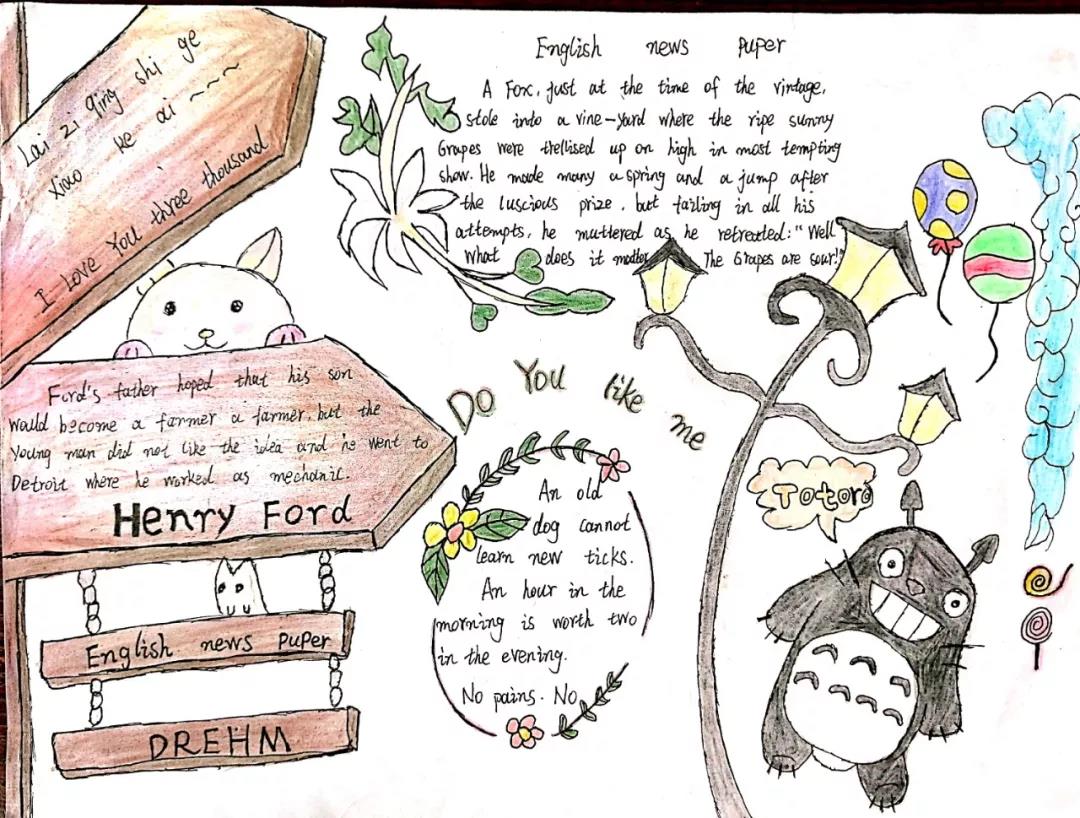 Lai zi qing shi ge
xiao ke ai ~~~
I Love You three thousand
English news puper
A Fox, just at the time of the vintage,
stole into a vine-yard where the ripe sunny
Grapes were trellised up on high in most tempting
show. He made many a spring and a jump after
the luscious prize, but failing in all his
attempts, he muttered as he retreated: "Well
What does it matter The Grapes are sour!"
Ford's father hoped that his son
would become a farmer a farmer, but the
Young man did not like the idea and he went to
Detroit where he worked as mechanic.
Henry Ford
English news puper
DREHM
Do You like me
An old
dog cannot
learn new ticks.
An hour in the
morning is worth two
in the evening.
No pains. No
Totoro